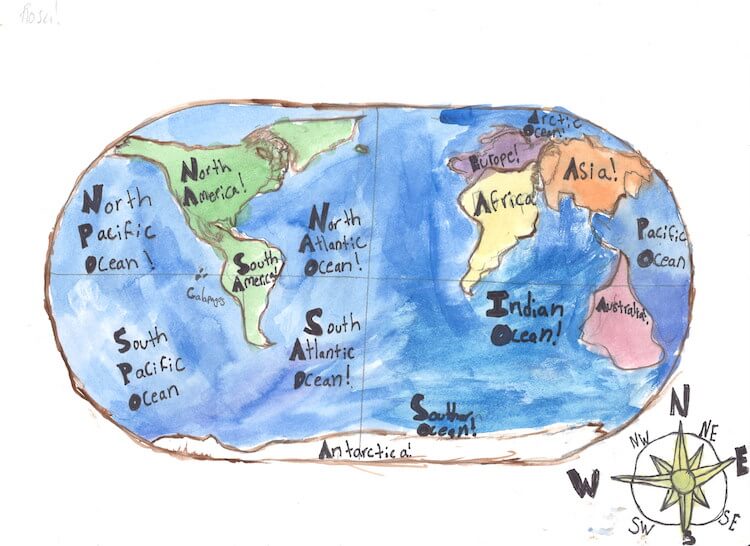 Arctic
Ocean!
Europe!
Asia!
North
America!
Africa
North
Pacific
Ocean!
North
Atlantic
Ocean!
Pacific
Ocean
South
America!
Galapagos
Indian
Ocean!
Australia!
South
Pacific
Ocean
South
Atlantic
Ocean!
Southern
Ocean!
Antarctica!
N
NW
NE
W
E
SW
SE
S